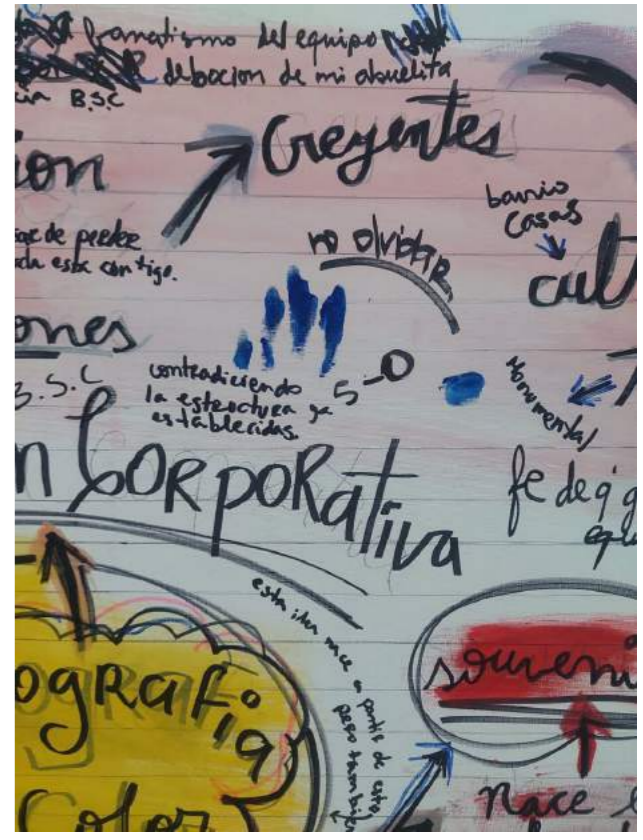 fanatismo del equipo
debocion de mi abuelita
B.S.C
Creyentes
ion
barrio
casas
no olvidar
de perder
esta contigo.
cul
ones
5-0
B.S.C
contradiciendo
la estructura ya
establecidas.
Monumental
n CORpORativa
fe de q
esta idea nace a partir de esto
pero tambien
souveni
ogRafia
Color
Nace